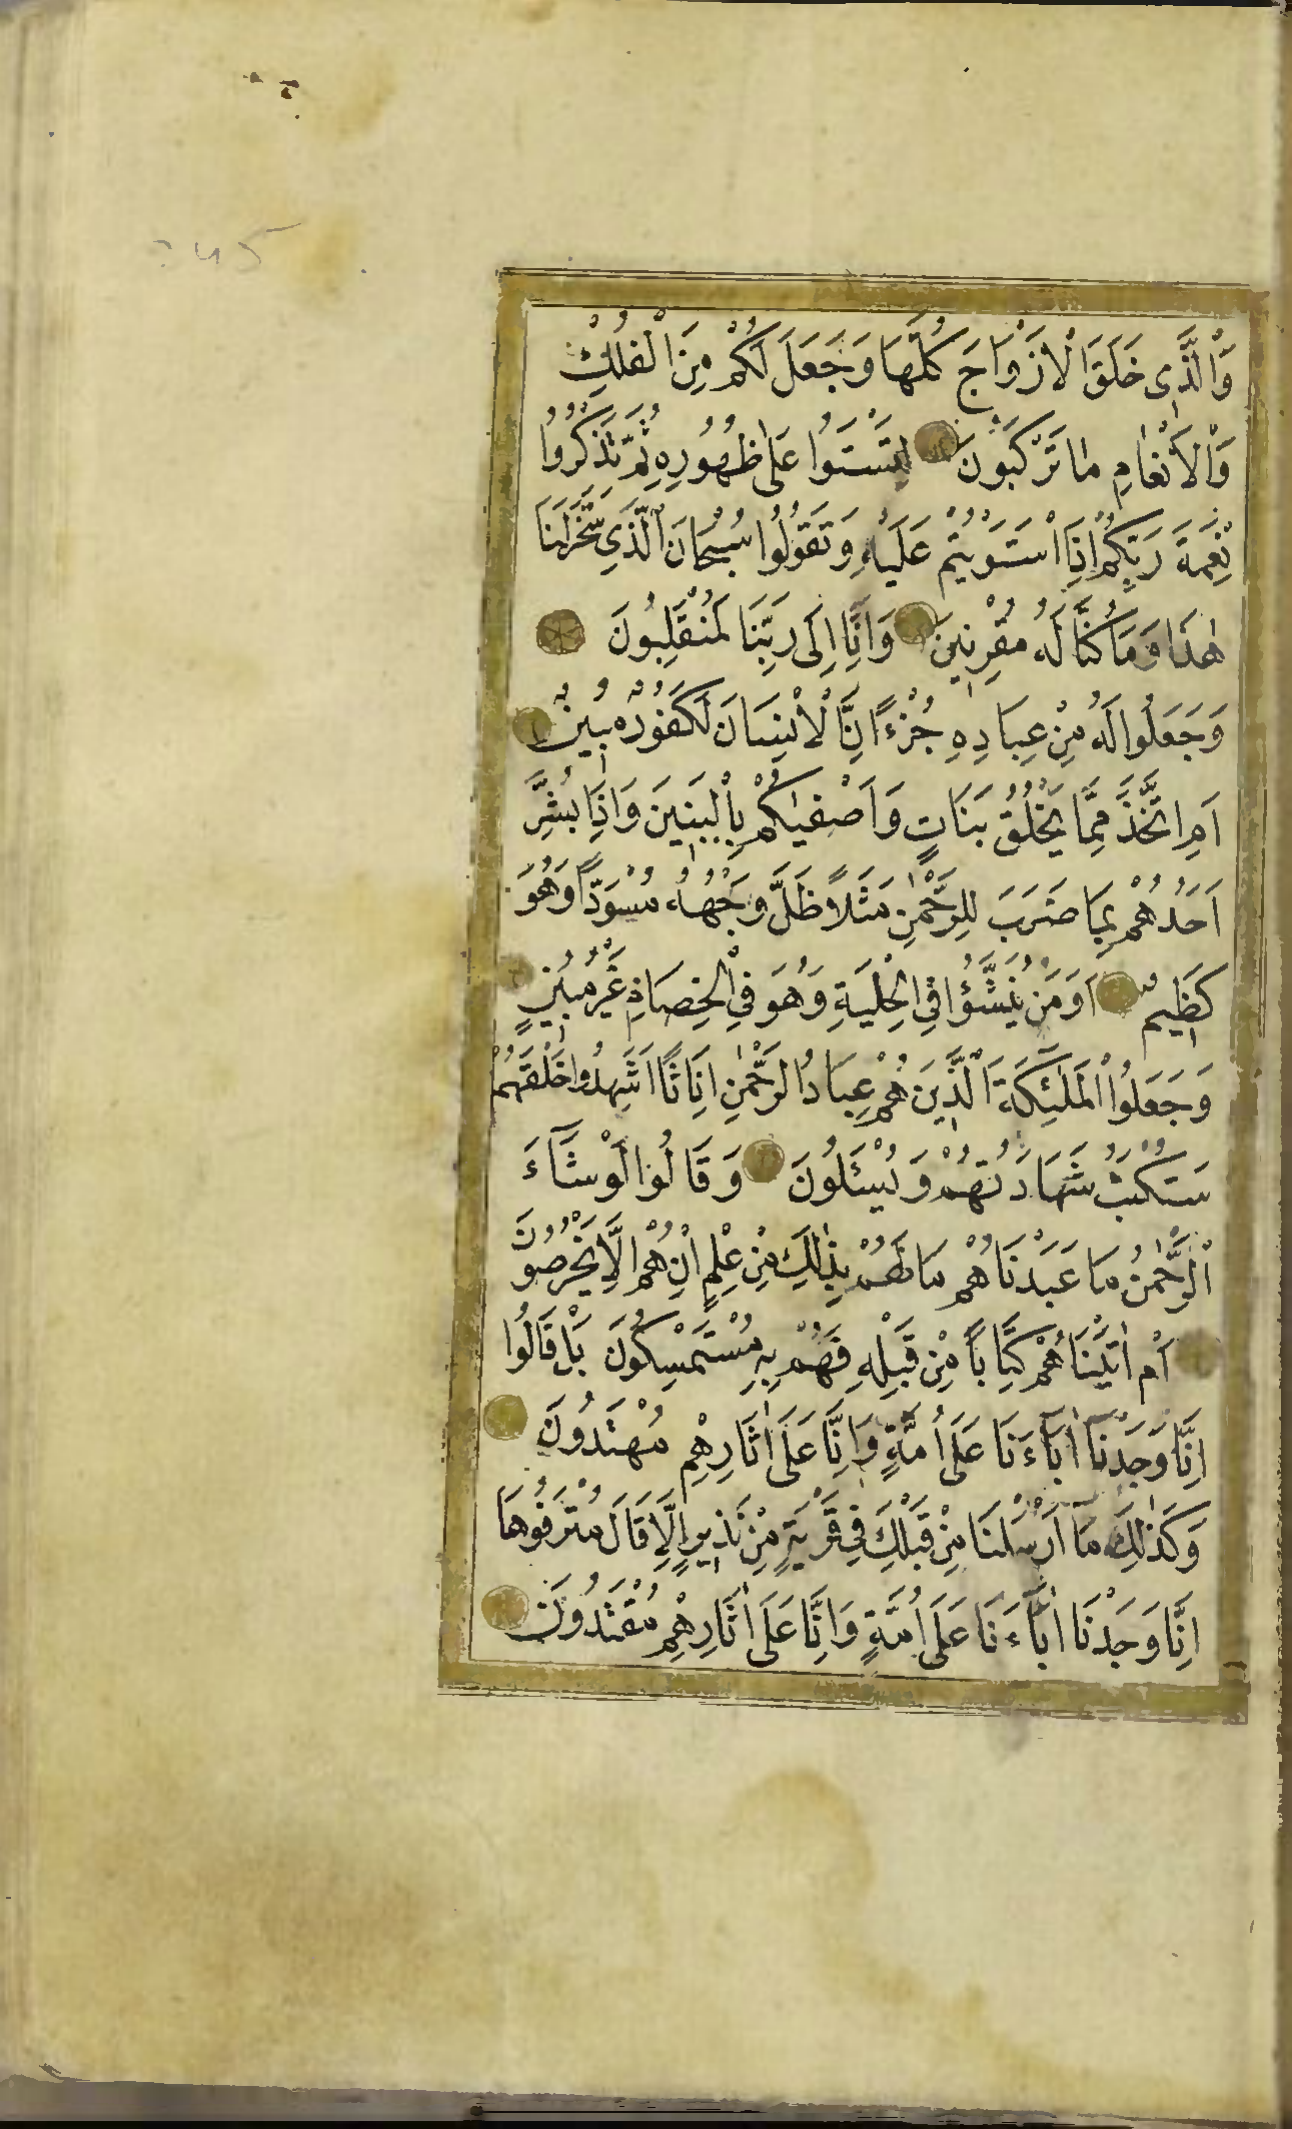 وَالَّذِى خَلَقَ الْاَزْوَاجَ كُلَّهَا وَجَعَلَ لَكُمْ مِنَ الْفُلْكِ
وَالْاَنْعَامِ مَا تَرْكَبُونَ لِتَسْتَوُا عَلٰى ظُهُورِهِ ثُمَّ تَذْكُرُوا
نِعْمَةَ رَبِّكُمْ اِذَا اسْتَوَيْتُمْ عَلَيْهِ وَتَقُولُوا سُبْحَانَ الَّذِى سَخَّرَ لَنَا
هٰذَا وَمَا كُنَّا لَهُ مُقْرِنِينَ وَاِنَّا اِلٰى رَبِّنَا لَمُنْقَلِبُونَ
وَجَعَلُوا لَهُ مِنْ عِبَادِهِ جُزْءًا اِنَّ الْاِنْسَانَ لَكَفُورٌ مُبِينٌ
اَمِ اتَّخَذَ مِمَّا يَخْلُقُ بَنَاتٍ وَاَصْفٰيكُمْ بِالْبَنِينَ وَاِذَا بُشِّرَ
اَحَدُهُمْ بِمَا ضَرَبَ لِلرَّحْمٰنِ مَثَلًا ظَلَّ وَجْهُهُ مُسْوَدًّا وَهُوَ
كَظِيمٌ اَوَمَنْ يُنَشَّؤُا فِى الْحِلْيَةِ وَهُوَ فِى الْخِصَامِ غَيْرُ مُبِينٍ
وَجَعَلُوا الْمَلٰئِكَةَ الَّذِينَ هُمْ عِبَادُ الرَّحْمٰنِ اِنَاثًا اَشَهِدُوا خَلْقَهُمْ
سَتُكْتَبُ شَهَادَتُهُمْ وَيُسْئَلُونَ وَقَالُوا لَوْ شَآءَ
الرَّحْمٰنُ مَا عَبَدْنَاهُمْ مَا لَهُمْ بِذٰلِكَ مِنْ عِلْمٍ اِنْ هُمْ اِلَّا يَخْرُصُونَ
اَمْ اٰتَيْنَاهُمْ كِتَابًا مِنْ قَبْلِهِ فَهُمْ بِهِ مُسْتَمْسِكُونَ بَلْ قَالُوا
اِنَّا وَجَدْنَا اٰبَآءَنَا عَلٰى اُمَّةٍ وَاِنَّا عَلٰى اٰثَارِهِمْ مُهْتَدُونَ
وَكَذٰلِكَ مَا اَرْسَلْنَا مِنْ قَبْلِكَ فِى قَرْيَةٍ مِنْ نَذِيرٍ اِلَّا قَالَ مُتْرَفُوهَا
اِنَّا وَجَدْنَا اٰبَآءَنَا عَلٰى اُمَّةٍ وَاِنَّا عَلٰى اٰثَارِهِمْ مُقْتَدُونَ